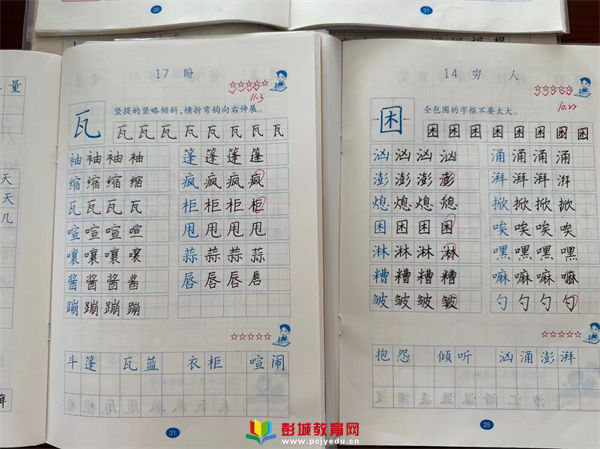 30
31
量
天
天
几
17 盼
11.3
竖提的竖略倾斜,横折弯钩向右伸展。
瓦 瓦 瓦 瓦 瓦 瓦 瓦 瓦 瓦
袖 袖 袖 袖 篷 篷 篷 篷
缩 缩 缩 缩 疯 疯 疯 疯
瓦 瓦 瓦 瓦 柜 柜 柜 柜
喧 喧 喧 喧 甩 甩 甩 甩
嚷 嚷 嚷 嚷 蒜 蒜 蒜 蒜
酱 酱 酱 酱 唇 唇 唇 唇
蹦 蹦 蹦 蹦
斗篷 瓦蓝 衣柜 喧闹
31
14 穷人
10.27
全包围的字框不要太大。
困 困 困 困 困 困 困 困 困
汹 汹 汹 汹 涌 涌 涌 涌
澎 澎 澎 澎 湃 湃 湃 湃
熄 熄 熄 熄 掀 掀 掀 掀
困 困 困 困 唉 唉 唉 唉
淋 淋 淋 淋 嘿 嘿 嘿 嘿
糟 糟 糟 糟 嘛 嘛 嘛 嘛
皱 皱 皱 皱 勺 勺 勺 勺
抱怨 倾听 汹涌澎湃
25
彭城教育网
www.pcjyedu.cn